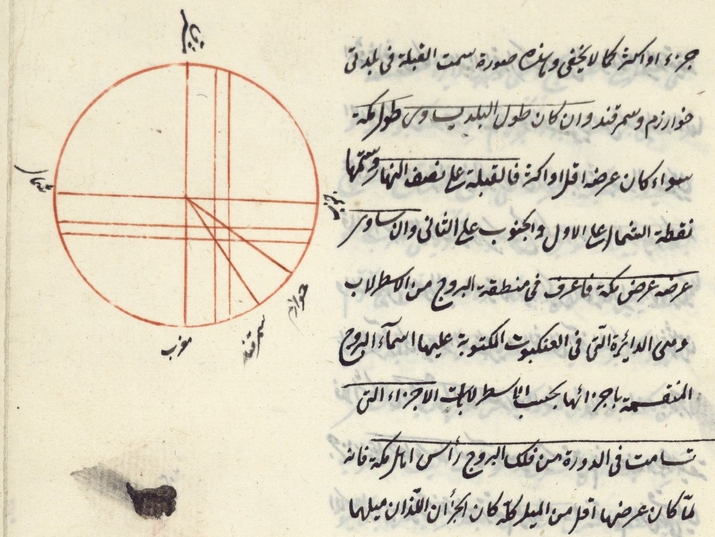 مشرق
شمال
جنوب
خوارزم
سمرقند
مغرب
جزء او اكثر كما لا يخفى وهذه صورة سمت القبلة فى بلدتى
خوارزم وسمرقند وان كان طول البلد يساوى طول مكة
سواء كان عرضه اقل او اكثر فالقبلة على نصف النهار وسمتها
نقطة الشمال على الاول والجنوب على الثانى وان ساوى
عرضه عرض مكة فاعرف فى منطقة البروج من الاسطرلاب
وهى الدائرة التى فى العنكبوت المكتوبة عليها اسماء البروج
المنقسمة باجزائها بحسب الاسطرلابات الاجزاء التى
تسامت فى الدورة من فلك البروج رأس اهل مكة فانه
لما كان عرضها اقل من الميل كله كان الجزأن اللذان ميلهما